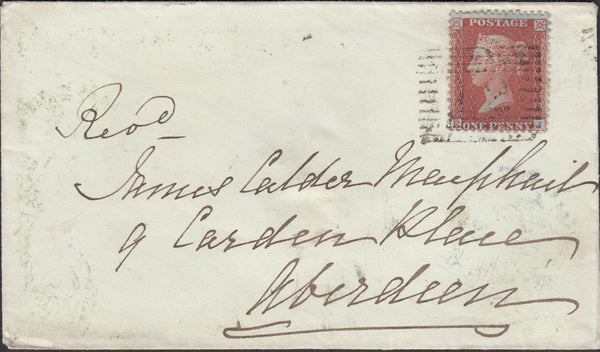 POSTAGE
ONE PENNY
Revd
James Calder Macphail
9 Carden Place
Aberdeen